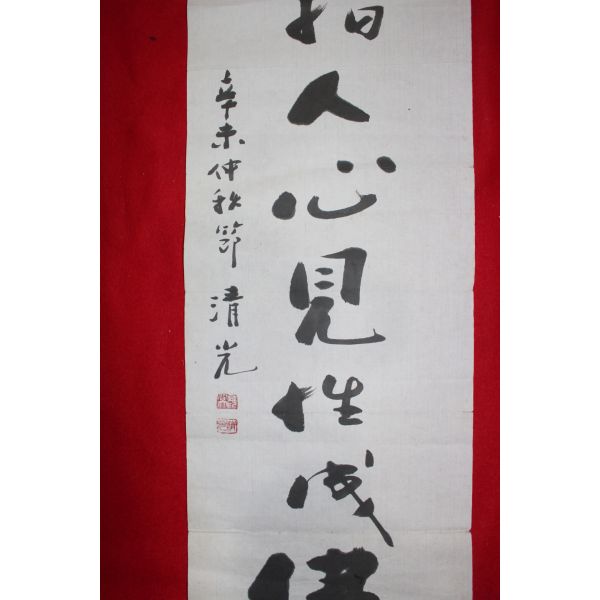 指人心見性成佛
辛未仲秋節 清光